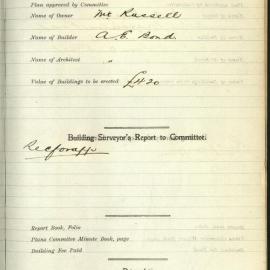 Plan approved by Committee
Name of Owner Mr Russell
Name of Builder A. E. Bond
Name of Architect "
Value of Buildings to be erected £420
Building Surveyor's Report to Committee.
Report Book, Folio
Plans Committee Minute Book, page
Building Fee Paid